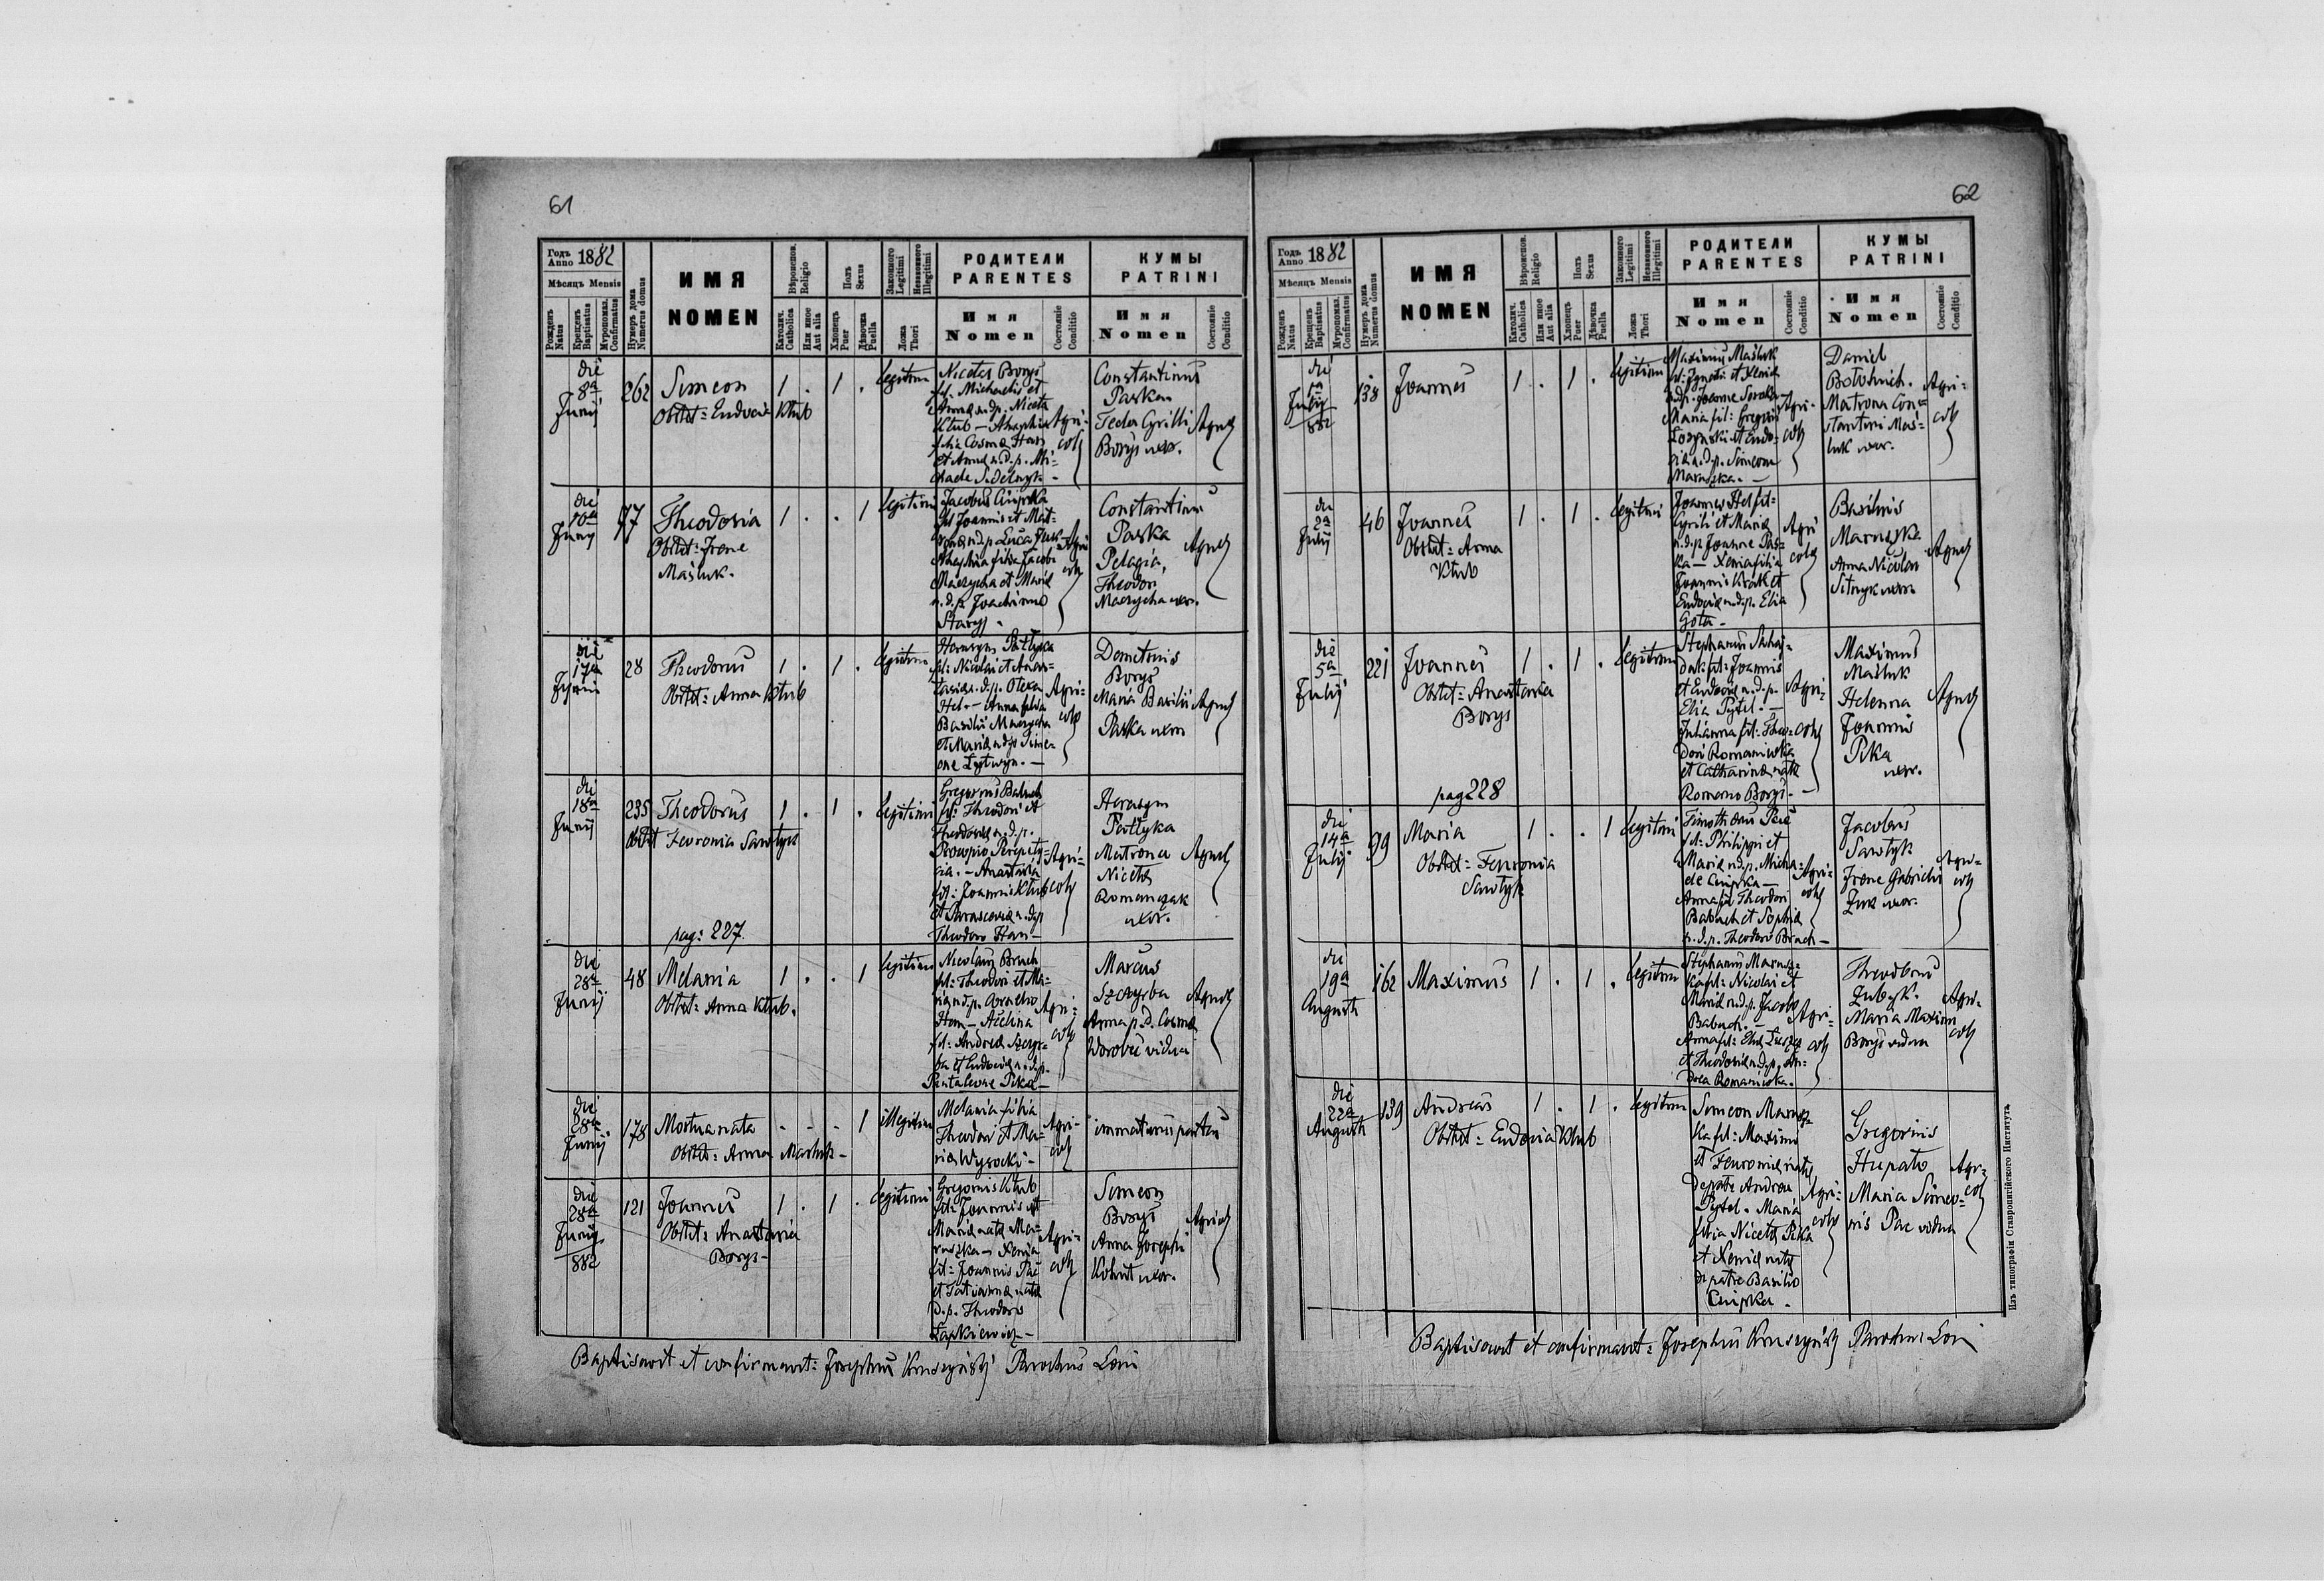 61
Годъ Anno 1882
Мѣсяцъ Mensis
Рожденъ Natus
Крещенъ Baptisatus
Мѵропомаз. Confirmatus
Нумеръ дома Numerus domus
ИМЯ
NOMEN
Вѣроиспов. Religio
Католич. Catholica
Или иное Aut alia
Полъ Sexus
Хлопецъ Puer
Дѣвочка Puella
Законного Legitimi
Незаконного Illegitimi
Ложа Thori
РОДИТЕЛИ
PARENTES
Имя
Nomen
Состояніе Conditio
КУМЫ
PATRINI
Имя
Nomen
Состояніе Conditio
die
8a
Junij
262
Simeon
Obstet: Eudocia Klub
1 . 1 .
legitimi
Nicetas Borys
fil. Michaelis et
Anna n.d.p. Niceta
Klub — Anaphia
filia Cosma Hen
et Anna n.d.p. Mi=
chaele
Agri=
colae
Constantinus
Paska
Tecla Cyrilli
Borys uxor.
Agricolae
die
10a
Junij
77
Theodosia
Obstet: Irene
Masluk.
1 . . 1
legitimi
Jacobus Cmipka
fil Joannis et Mat=
rona n.d.p. Luca
filia Jacobi
Maczycha et Maria
n.d.p. Joachimo
Staryj.
Agri
colae
Constantinus
Paska
Pelagia,
Theodori
Maczycha uxor.
Agricolae
die
17a
Junii
28
Theodorus
Obstet: Anna Klub
1 . 1 .
legitimi
Harasym Patlyka
fil: Nicolai et Anas=
tasia n.d.p. Olexa
Hel — Anna filia
Basilii Maczycha
et Maria n.d.p. Sime=
one Lytwyn. —
Agri=
colae
Demetrius
Borys
Maria Basilii
Paska uxor
Agricolae
die
18a
Junij
235
Theodorus
Obstet Fevronia Sawtyk
pag: 227.
1 . 1 .
legitimi
Gregorius Babuch
fil: Theodori et
Theodosia n.d.p.
Procopio Perepety=
cia. — Anastasia
fil: Joannis Klub
et Parascevia n.d.p
Theodoro Hen —
Agri=
colae
Harasym
Patlyka
Matrona
Niceta
Romanczak
uxor.
Agricolae
die
28a
Junij
48
Melania
Obstet: Anna Klub.
1 . . 1
legitimi
Nicolaus Bruch
fil: Theodori et Ma=
ria n.d.p. Cornelio
Hen — Acelina
fil: Andrea Szczyr=
ba et Eudocia n.d.p.
Pantaleone Pika —
Agri=
colae
Marcus
Szczyrba
Anna p.d. Cosma
Worobec vidua
Agricolae
die
28a
Junij
178
Mortua nata
Obstet: Anna Masluk —
- - - 1
illegitimi
Melania filia
Theodori et Ma=
ria Wysocki —
Agri=
colae
immaturus partus
die
28a
Junij
882
121
Joannes
Obstet: Anastasia
Borys —
1 . 1 .
legitimi
Gregorius Klub
fil: Joannis et
Maria nata Ma=
ruszka — Xenia
fil: Joannis Pac
et Tatianna nata
d.p. Theodoro
Lapkiewicz —
Agri=
colae
Simeon
Borys
Anna Josephi
Kohut uxor.
Agricolae
Baptisavit et confirmavit: Josephus Parochus Loci
62
Годъ Anno 1882
Мѣсяцъ Mensis
Рожденъ Natus
Крещенъ Baptisatus
Мѵропомаз. Confirmatus
Нумеръ дома Numerus domus
ИМЯ
NOMEN
Вѣроиспов. Religio
Католич. Catholica
Или иное Aut alia
Полъ Sexus
Хлопецъ Puer
Дѣвочка Puella
Законного Legitimi
Незаконного Illegitimi
Ложа Thori
РОДИТЕЛИ
PARENTES
Имя
Nomen
Состояніе Conditio
КУМЫ
PATRINI
Имя
Nomen
Состояніе Conditio
die
1a
Julij
882
138
Joannes
1 . 1 .
legitimi
Maximus Masluk
fil: Ignatii et Xenia
n.d.p. Joanne
Maria fil: Gregorii
Lozynski et Eudo=
cia n.d.p. Simeone
Maruszka. —
Agri=
colae
Daniel
Botvinich.
Matrona Con=
stantini Mas=
luk uxor.
Agri=
colae
die
2a
Julij
46
Joannes
Obstet: Anna
Klub
1 . 1 .
legitimi
Joannes Hel fil=
Cyrili et Maria
n.d.p. Joanne Pas=
ka — Xenia filia
Joannis Krak et
Eudocia n.d.p. Elia
Gota —
Agri
colae
Basilius
Maruszka
Anna Nicolai
Sitnyk uxor
Agricolae
die
5a
Julij
221
Joannes
Obstet: Anastasia
Borys
pag 228
1 . 1 .
legitimi
Stephanus Sahaj=
dak fil: Joannis
et Eudocia n.d.p.
Elia Pytel. —
Julianna fil: Theo=
dori Romaniwka
et Catharina nata
Romano Borys. —
Agri=
colae
Maximus
Masluk
Helenna
Joannis
Pika
uxor.
Agricolae
die
14a
Julij
99
Maria
Obstet: Fevronia
Sawtyk
1 . . 1
legitimi
Timotheus Pac
fil: Philippi et
Maria n.d.p. Micha=
ele Cmipka —
Anna fil Theodori
Babuch et Sophia
n.d.p. Theodoro Bruch —
Agri=
colae
Jacobus
Sawtyk
Irene Gabrielis
Zuk uxor.
Agri=
colae
die
19a
Augusti
162
Maximus
1 . 1 .
legitimi
Stephanus Marusz=
ka fil: Nicolai et
Maria n.d.p. Jacobo
Babuch. —
Anna fil: Elia
et Theodosia n.d.p. An=
drea Romaniwka.
Agri=
colae
Theodorus
Zubyk.
Maria Maximi
Borys vidua
Agri=
colae
die
22a
Augusti
139
Andreas
Obstet: Eudocia Klub
1 . 1 .
legitimi
Simeon Marusz=
ka fil: Maximi
et Fevronia nata
de patre Andrea
Pytel. Maria
filia Niceta Pika
et Xenia nata
de patre Basilio
Cmipka.
Agri=
colae
Gregorius
Hupalo
Maria Simeo=
nis Pac vidua
Agri=
colae
Baptisavit et confirmavit: Josephus Parochus Loci
Изъ типографіи Ставропигійского Института